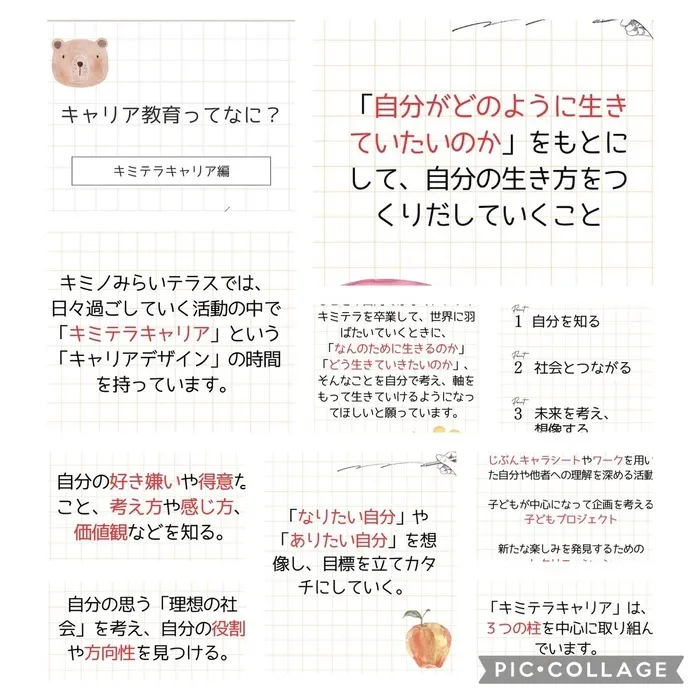 キャリア教育ってなに？
キミテラキャリア編
「自分がどのように生き
ていたいのか」をもとに
して、自分の生き方をつ
くりだしていくこと
キミノみらいテラスでは、
日々過ごしていく活動の中で
「キミテラキャリア」という
「キャリアデザイン」の時間
を持っています。
キミテラを卒業して、世界に羽
ばたいていくときに、
「なんのために生きるのか」
「どう生きていきたいのか」、
そんなことを自分で考え、軸を
もって生きていけるようになっ
てほしいと願っています。
Point
1 自分を知る
Point
2 社会とつながる
Point
3 未来を考え、
想像する
自分の好き嫌いや得意な
こと、考え方や感じ方、
価値観などを知る。
「なりたい自分」や
「ありたい自分」を想
像し、目標を立てカタ
チにしていく。
じぶんキャラシートやワークを用い
た自分や他者への理解を深める活動
子どもが中心になって企画を考える
子どもプロジェクト
新たな楽しみを発見するための
自分の思う「理想の社
会」を考え、自分の役割
や方向性を見つける。
「キミテラキャリア」は、
３つの柱を中心に取り組ん
でいます。
PIC•COLLAGE